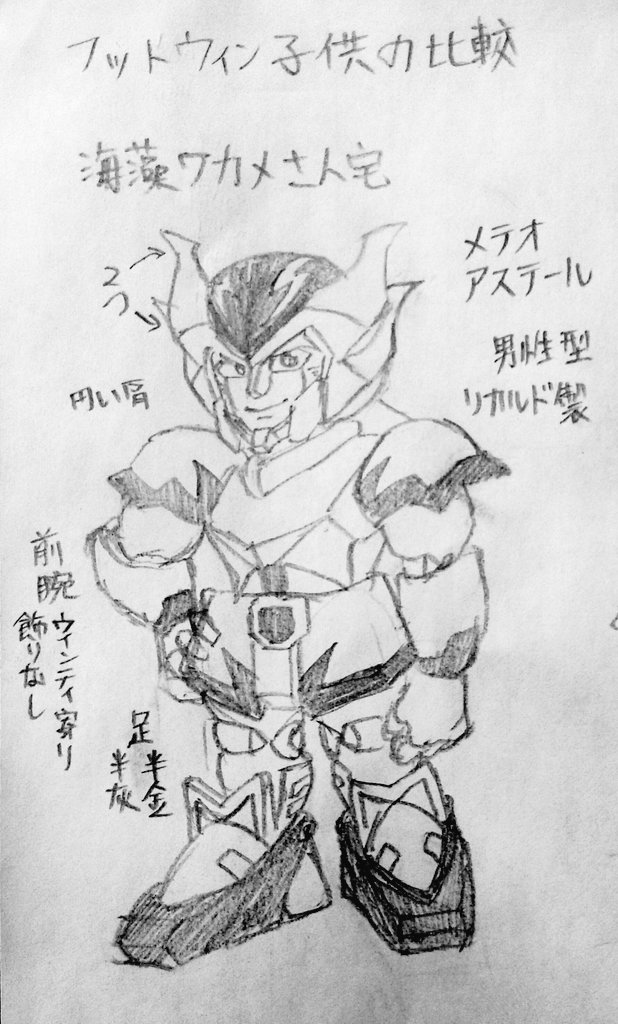 フットウィン子供の比較
海藻ワカメさん宅
メテオ
アステール
2つ
男性型
リカルド製
円い肩
前腕
ウィンディ寄り
飾りなし
足
半金
半灰